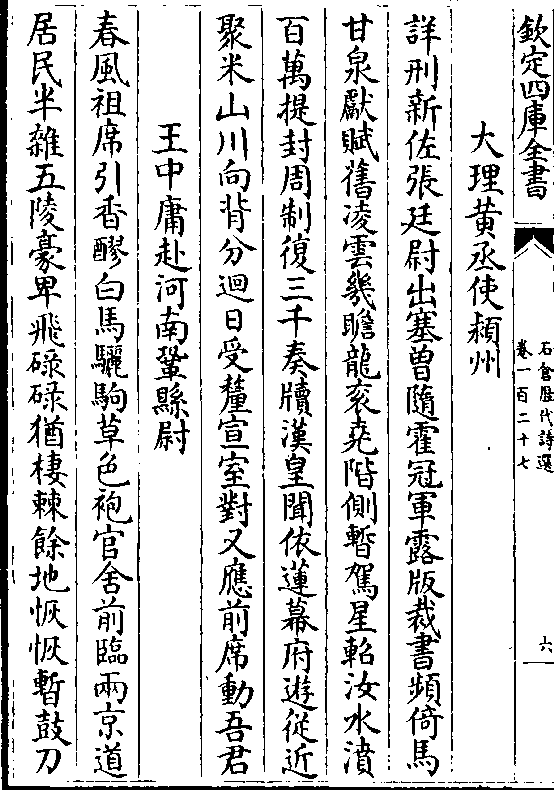 欽定四庫全書
石倉歷代詩選
卷一百二十七
六
大理黃丞使潁州
詳刑新佐張廷尉出塞曾隨霍冠軍露版裁書頻倚馬
甘泉獻賦舊凌雲幾瞻龍衮堯階側暫駕星軺汝水濆
百萬提封周制復三千奏牘漢皇聞依蓮幕府遊從近
聚米山川向背分迴日受釐宣室對又應前席動吾君
王中庸赴河南鞏縣尉
春風祖席引香醪白馬驪駒草色袍官舍前臨兩京道
居民半雜五陵豪卑飛碌碌猶棲棘餘地恢恢暫鼓刀